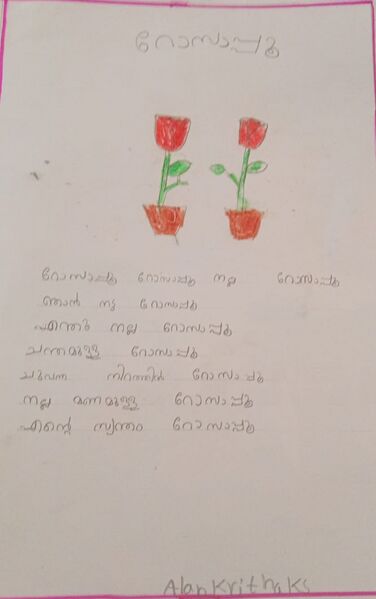 റോസാപ്പൂ
റോസാപ്പൂ റോസാപ്പൂ നല്ല റോസാപ്പൂ
ഞാൻ നട്ട റോസാപ്പൂ
എന്തൊരു നല്ല റോസാപ്പൂ
ചന്തമുള്ള റോസാപ്പൂ
ചുവന്ന നിറത്തിൻ റോസാപ്പൂ
നല്ല മണമുള്ള റോസാപ്പൂ
എന്റെ സ്വന്തം റോസാപ്പൂ
Alankritha KS